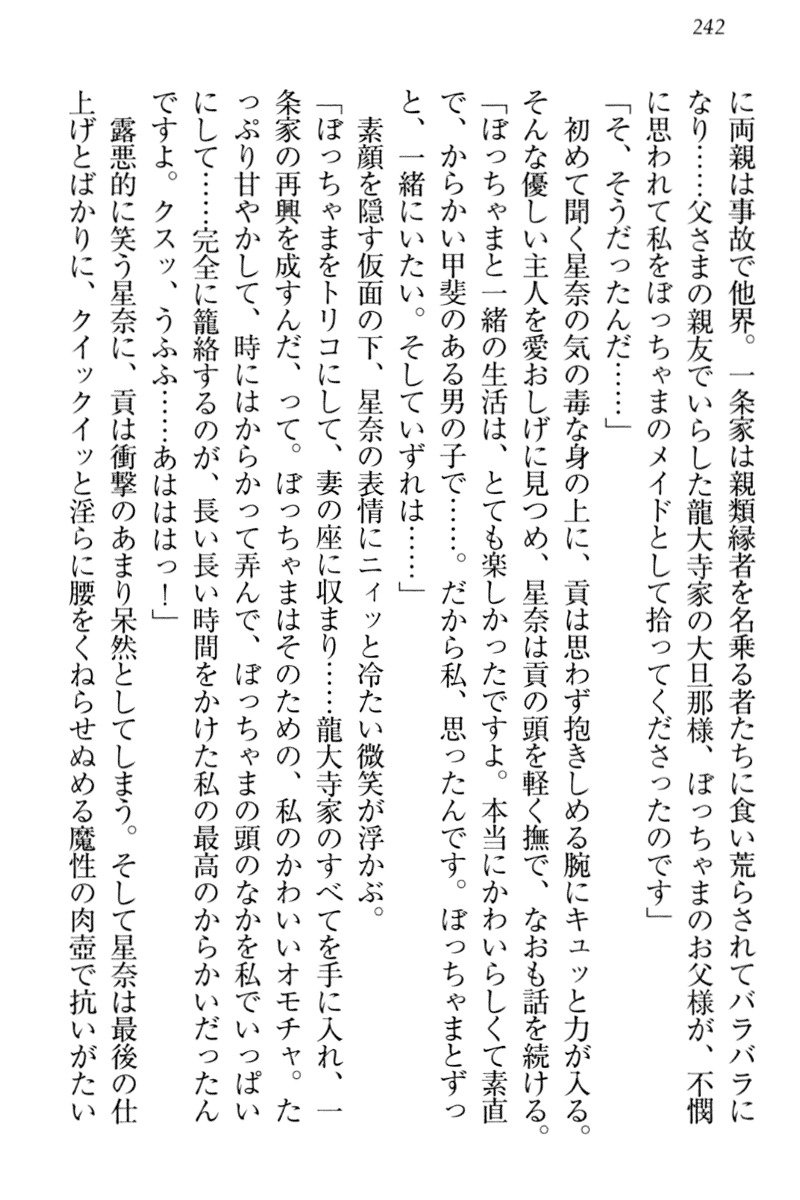 242
に両親は事故で他界。一条家は親類縁者を名乗る者たちに食い荒らされてバラバラに
なり……父さまの親友でいらした龍大寺家の大旦那様、ぼっちゃまのお父様が、不憫
に思われて私をぼっちゃまのメイドとして拾ってくださったのです」
「そ、そうだったんだ……」
　初めて聞く星奈の気の毒な身の上に、貢は思わず抱きしめる腕にキュッと力が入る。
そんな優しい主人を愛おしげに見つめ、星奈は貢の頭を軽く撫で、なおも話を続ける。
「ぼっちゃまと一緒の生活は、とても楽しかったですよ。本当にかわいらしくて素直
で、からかい甲斐のある男の子で……。だから私、思ったんです。ぼっちゃまとずっ
と、一緒にいたい。そしていずれは……」
　素顔を隠す仮面の下、星奈の表情にニィッと冷たい微笑が浮かぶ。
「ぼっちゃまをトリコにして、妻の座に収まり……龍大寺家のすべてを手に入れ、一
条家の再興を成すんだ、って。ぼっちゃまはそのための、私のかわいいオモチャ。た
っぷり甘やかして、時にはからかって弄んで、ぼっちゃまの頭のなかを私でいっぱい
にして……完全に籠絡するのが、長い長い時間をかけた私の最高のからかいだったん
ですよ。クスッ、うふふ……あはははっ！」
　露悪的に笑う星奈に、貢は衝撃のあまり呆然としてしまう。そして星奈は最後の仕
上げとばかりに、クイックイッと淫らに腰をくねらせぬめる魔性の肉壺で抗いがたい